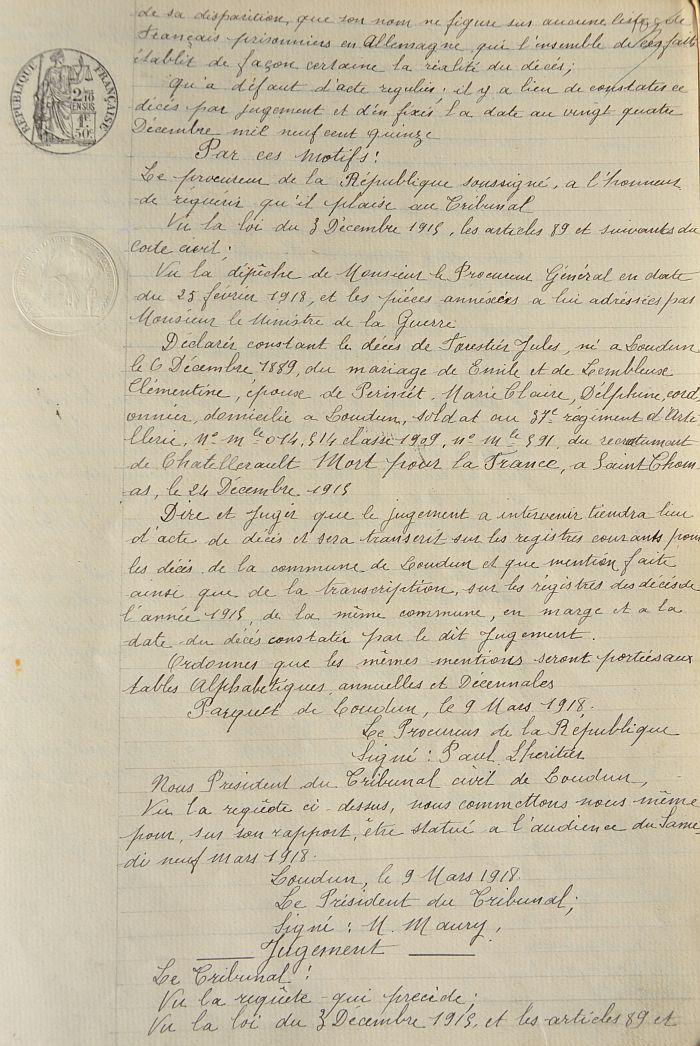 de sa disparition, que son nom ne figure sur aucune liste de
Français prisonniers en Allemagne qui l'ensemble de ces faits
établit de façon certaine la réalité du décès;
Qu'a défaut d'acte régulier il y a lieu de constater ce
décès par jugement et d'en fixés la date au vingt quatre
Décembre mil neuf cent quinze
Par ces motifs:
Le procureur de la République soussigné, a l'honneur
de réquérir qu'il plaise au Tribunal
Vu la loi du 3 Décembre 1915, les articles 89 et suivants du
code civil:
Vu la dépêche de Monsieur le Procureur Général en date
du 25 février 1918, et les pièces annéxées a lui adréssées par
Monsieur le Ministre de la Guerre
Déclarer constant le décès de Forestier Jules, né a Loudun
le 6 Décembre 1889, du mariage de Emile et de Lembleuse
Clémentine, épouse de Marie Claire, Delphine, cord
onnier, domicilié a Loudun, soldat au 37e régiment d'Arti
llerie, No mle 014,514 classe 1909, No mle 591, du recrutement
de Chatellerault Mort pour la France, a Saint Thom
as, le 24 Décembre 1915
Dire et Juger que le jugement a intervenir tiendra lieu
d'acte de décès et sera transcrit sur les registres courants pour
les décès de la commune de Loudun et que mention faite
ainsi que de la transcription, sur les régistres des décès de
l'année 1915, de la même commune, en marge et a la
date du décès constater par le dit Jugement.
Ordonnes que les mêmes mentions seront portées aux
tables Alphabétiques, annuelles et Décennales
Parquet de Loudun, le 9 Mars 1918.
Le Procureur de la République
Signé: Paul Lheritier
Nous Président du Tribunal civil de Loudun,
Vu la requête ci-dessus, nous commettons nous même
pour, sur son rapport, être statué a l'audience du Same
di neuf mars 1918.
Loudun, le 9 Mars 1918.
Le Président du Tribunal;
Signé: M. Maury.
Jugement
Le Tribunal:
Vu la requête qui précède;
Vu la loi du 3 Décembre 1915, et les articles 89 et
RÉPUBLIQUE FRANÇAISE